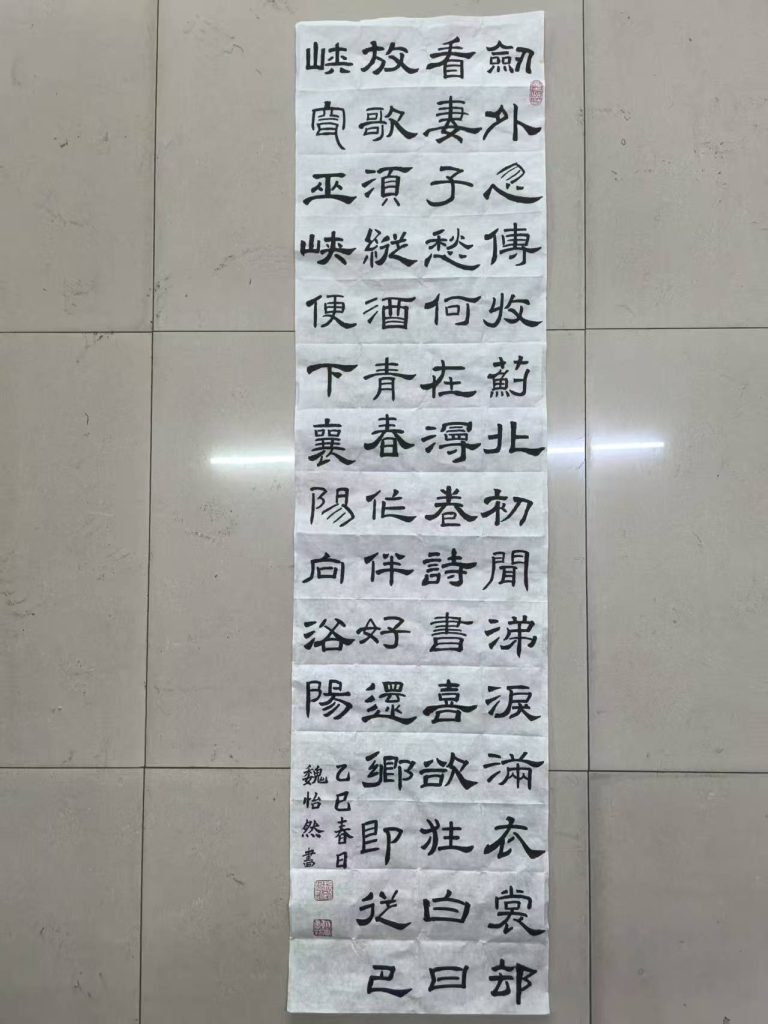 劒外忽傳收薊北初聞涕淚滿衣裳却
看妻子愁何在漫卷詩書喜欲狂白日
放歌須縱酒青春作伴好還鄉即從巴
峽穿巫峽便下襄陽向洛陽
乙巳春日
魏怡然書